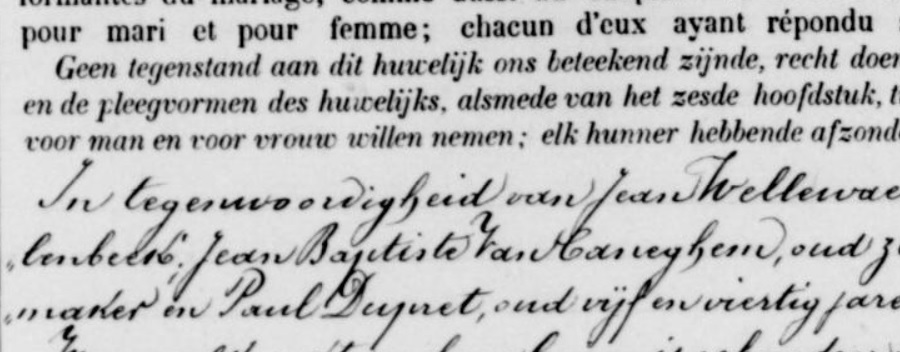 pour mari et pour femme; chacun d'eux ayant répondu
Geen tegenstand aan dit huwelijk ons beteekend zijnde, recht doen
en de pleegvormen des huwelijks, alsmede van het zesde hoofdstuk, t
voor man en voor vrouw willen nemen; elk hunner hebbende afzond
In tegenwoordigheid van Jean Wellewae
lenbeek, Jean Baptiste Van Caneghem, oud z
maker en Paul Dupret, oud vijf en viertig jare